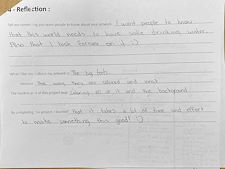 4 - Reflection :
Tell our viewers / any one more people to know about your artwork: I want people to know
that this world needs to have safe drinking water.
Also that I took forever on it :)
What I like most about my artwork is The big tank
because The way they are colored and small
The hardest part of this project was Coloring all of it and the background
By completing this project I learned that it takes a lot of time and effort
to make something this good! :)